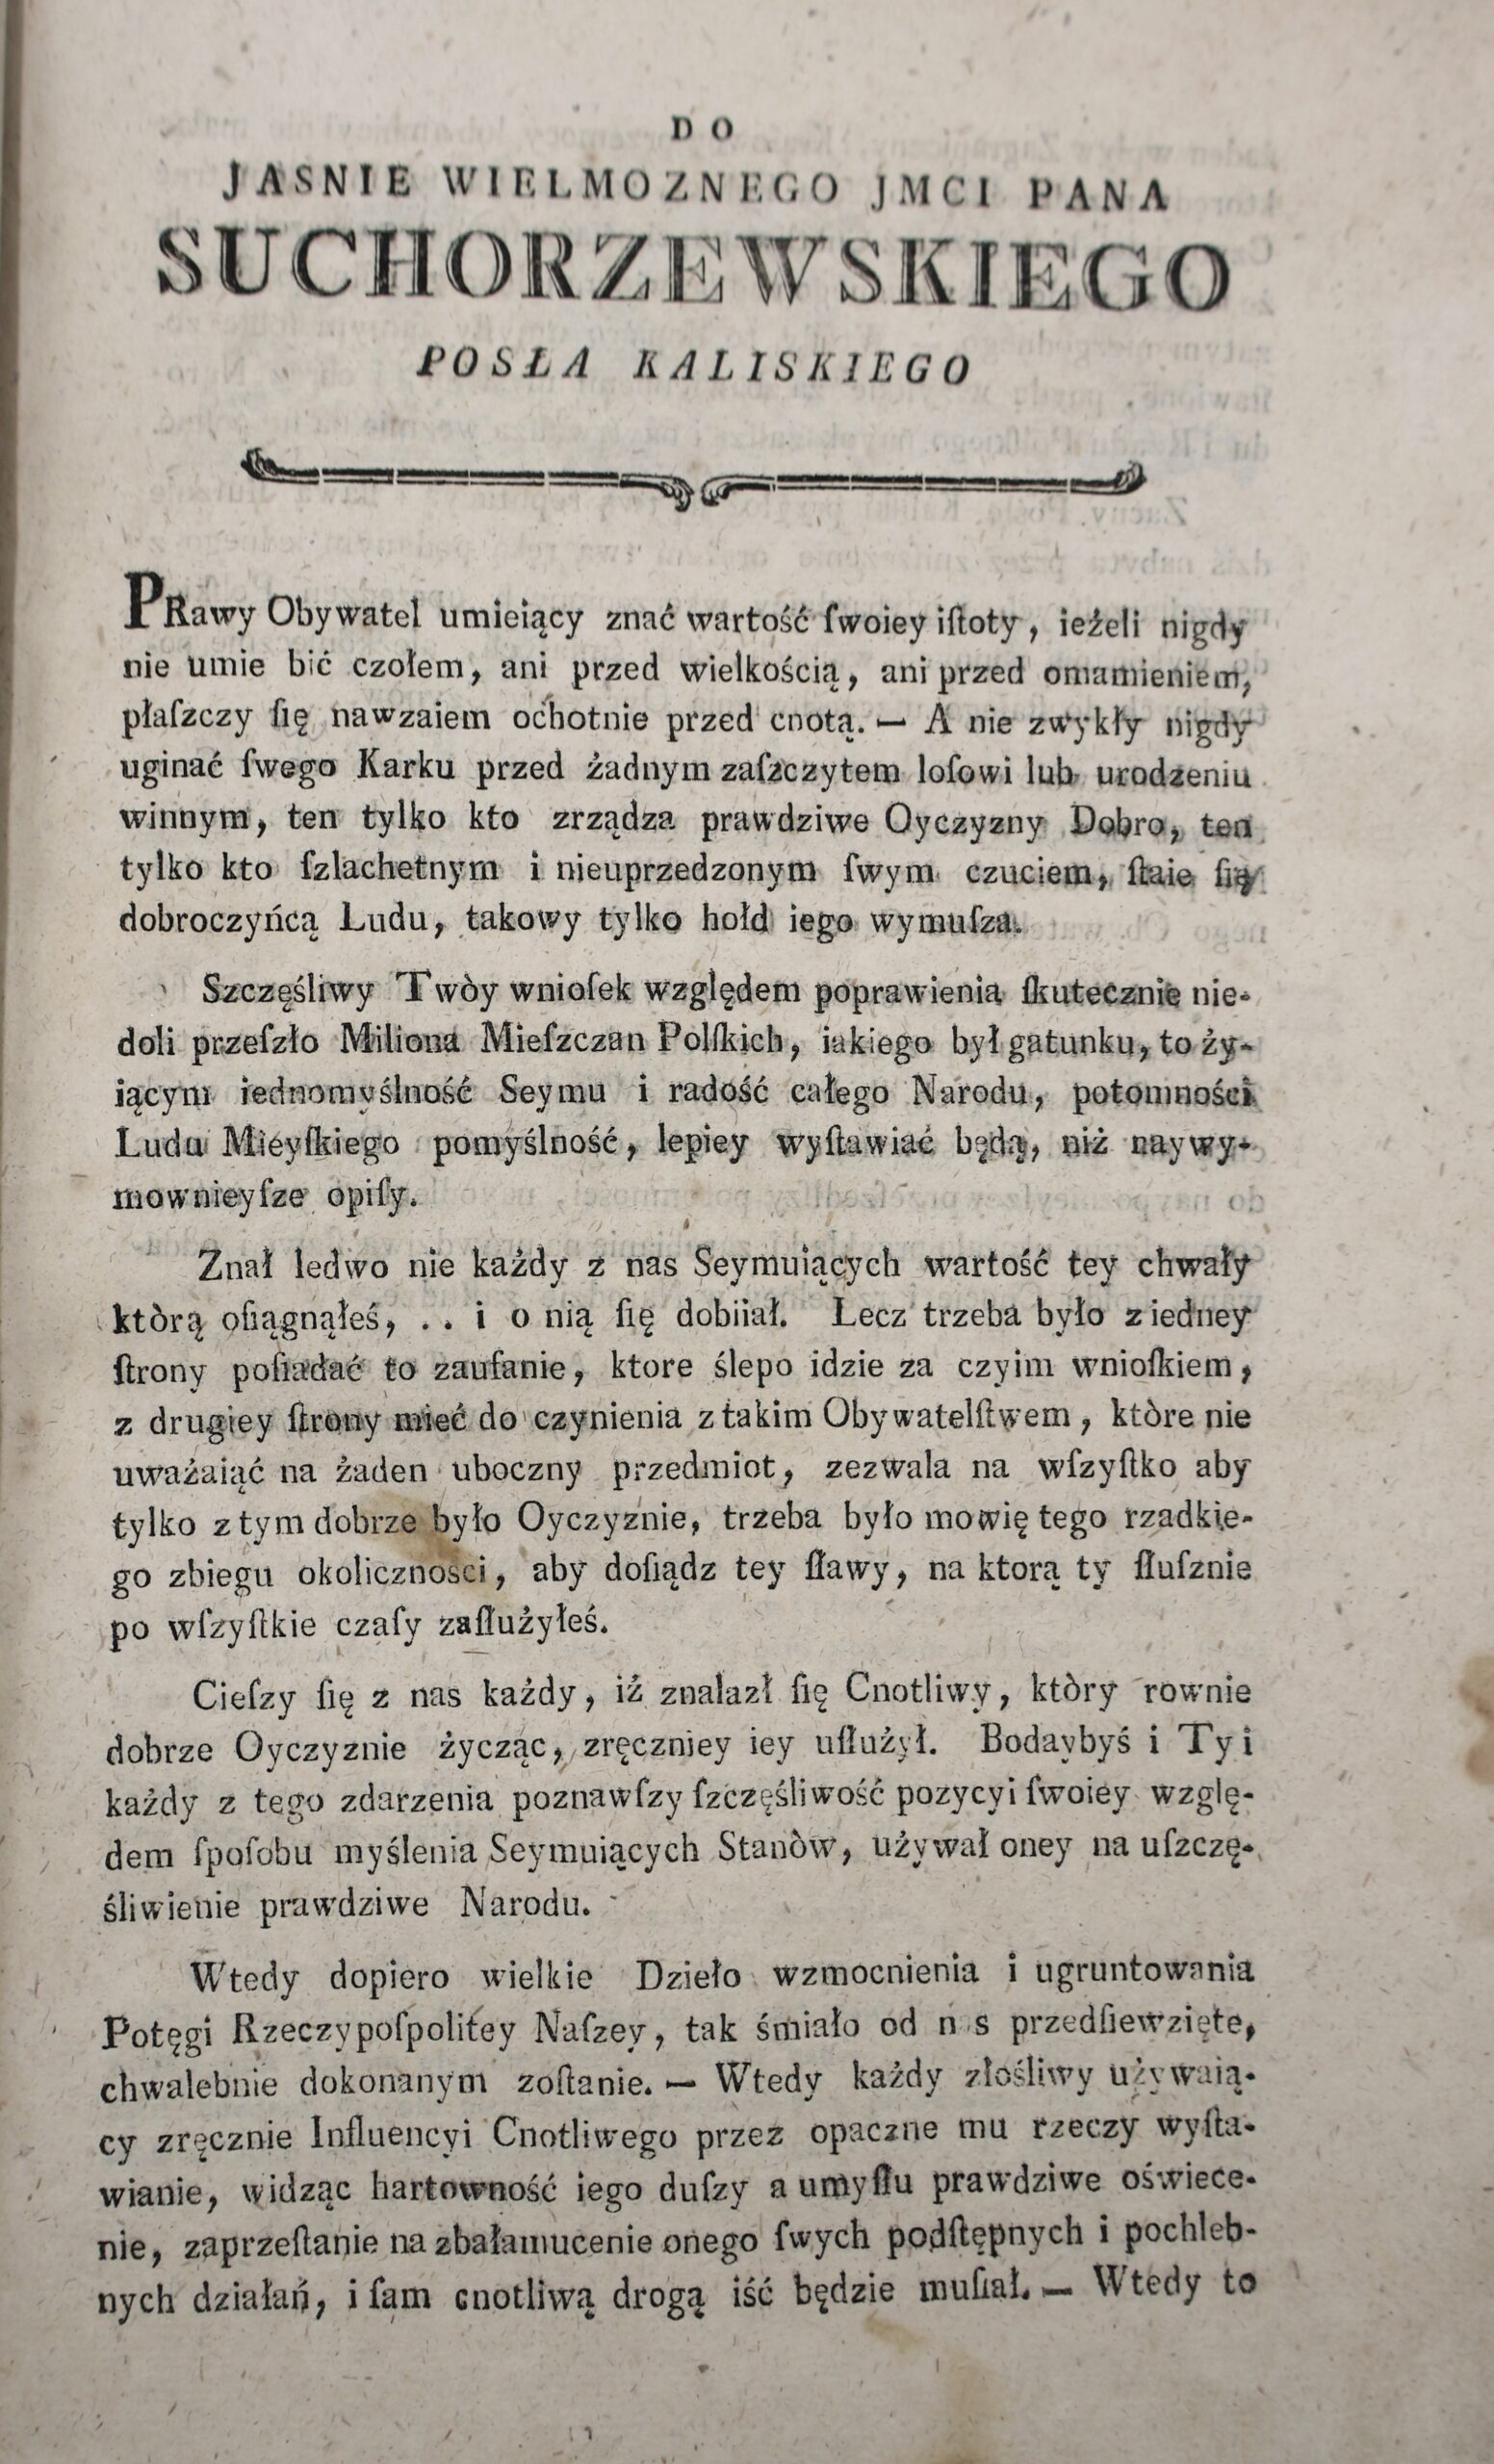 DO
JASNIE WIELMOZNEGO JMCI PANA
SUCHORZEWSKIEGO
POSŁA KALISKIEGO
PRawy Obywatel umieiący znać wartość ſwoiey iſtoty, ieżeli nigdy
nie umie bić czołem, ani przed wielkością, ani przed omamieniem,
płaſzczy ſię nawzaiem ochotnie przed cnotą. — A nie zwykły nigdy
uginać ſwego Karku przed żadnym zaſzczytem loſowi lub urodzeniu
winnym, ten tylko kto zrządza prawdziwe Oyczyzny Dobro, ten
tylko kto ſzlachetnym i nieuprzedzonym ſwym czuciem, ſtaie ſię
dobroczyńcą Ludu, takowy tylko hołd iego wymuſza.
Szczęśliwy Twòy wnioſek względem poprawienia ſkutecznie nie-
doli przeſzło Miliona Mieſzczan Polſkich, iakiego był gatunku, to ży-
iącym iednomyślność Seymu i radość całego Narodu, potomności
Ludu Mieyſkiego pomyślność, lepiey wyſtawiać będą, niż naywy-
mownieyſze opiſy.
Znał ledwo nie każdy z nas Seymuiących wartość tey chwały
którą oſiągnąłeś, . . i o nią ſię dobiiał. Lecz trzeba było z iedney
ſtrony poſiadać to zaufanie, ktore ślepo idzie za czyim wnioſkiem,
z drugiey ſtrony mieć do czynienia z takim Obywatelſtwem, któ̀re nie
uważaiąć na żaden uboczny przedmiot, zezwala na wſzyſtko aby
tylko z tym dobrze było Oyczyznie, trzeba było mowię tego rzadkie-
go zbiegu okolicznosci, aby doſiądz tey ſławy, na ktorą ty ſłuſznie
po wſzyſtkie czaſy zaſłużyłeś.
Cieſzy ſię z nas każdy, iż znalazł ſię Cnotliwy, któ̀ry rownie
dobrze Oyczyznie życząc, zręczniey iey uſłużył. Bodaybyś i Ty i
każdy z tego zdarzenia poznawſzy ſzczęśliwość pozycyi ſwoiey wzglę-
dem ſpoſobu myślenia Seymuiących Stanòw, używał oney na uſzczę-
śliwienie prawdziwe Narodu.
Wtedy dopiero wielkie Dzieło wzmocnienia i ugruntowania
Potęgi Rzeczypoſpolitéy Naſzey, tak śmiało od n s przedſiewzięte,
chwalebnie dokonanym zoſtanie. — Wtedy każdy złośliwy używaią-
cy zręcznie Influencyi Cnotliwego przez opaczne mu rzeczy wyſta-
wianie, widząc hartowność iego duſzy a umyſłu prawdziwe oświece-
nie, zaprzeſtanie na zbałamucenie onego ſwych podſtępnych i pochleb-
nych działań, i ſam cnotliwą drogą iść będzie muſiał. — Wtedy to